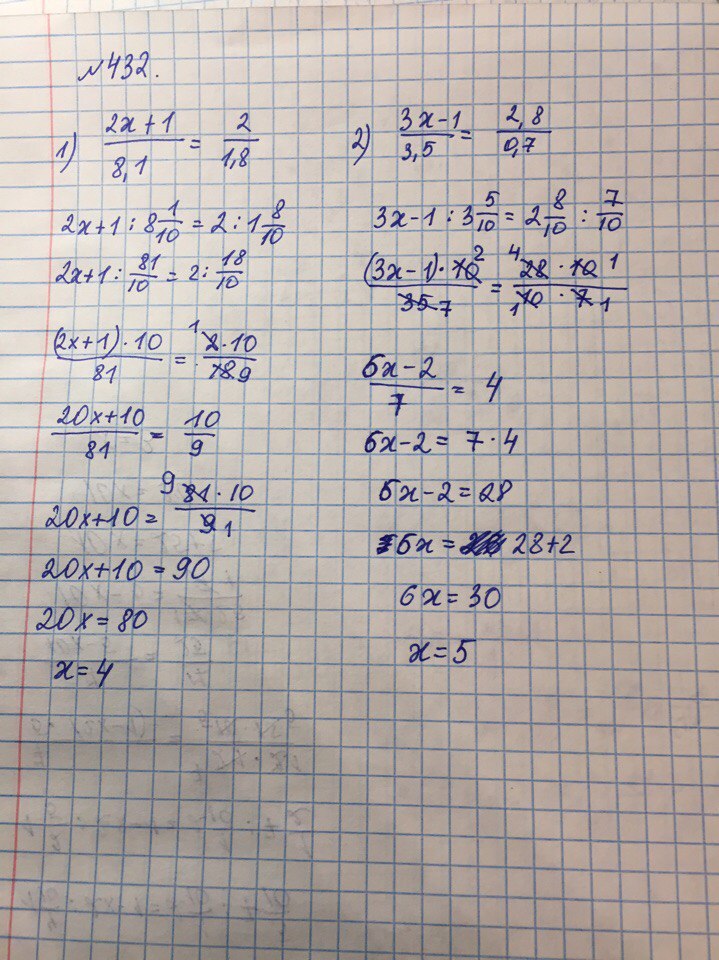 №432.
1) (2x+1)/8,1 = 2/1,8
2x+1 : 8 1/10 = 2 : 1 8/10
2x+1 : 81/10 = 2 : 18/10
(2x+1)·10/81 = 1 2·10/18 9
20x+10/81 = 10/9
20x+10 = 9 81·10/9 1
20x+10 = 90
20x = 80
x = 4
2) 3x-1/3,5 = 2,8/0,7
3x-1 : 3 5/10 = 2 8/10 : 7/10
(3x-1)·10 2/35 7 = 4 28·10 1/1 10·7 1
6x-2/7 = 4
6x-2 = 7·4
6x-2 = 28
6x = 28+2
6x = 30
x = 5